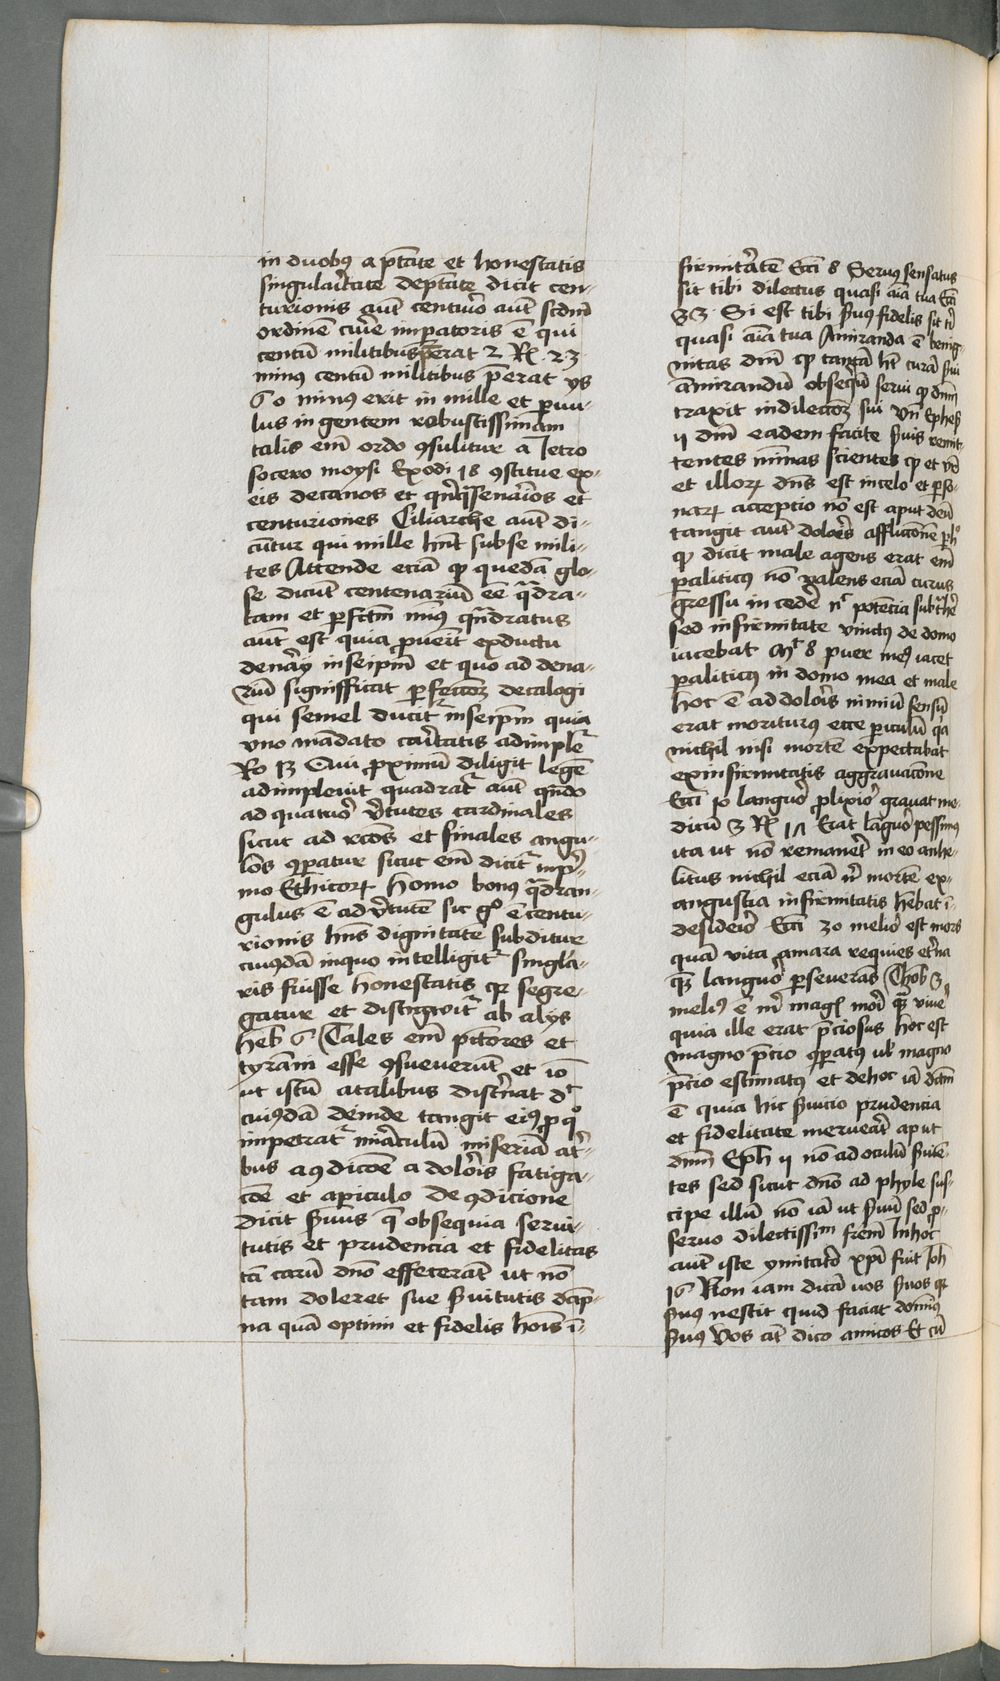 in duobꝰ a ptāte et honestatis
singularitate deptāte dicit cen-
turionis aut̄ centuō aut̄ scdm̄
ordinē cuiē impatoris ē qui
centū militibus p̄erat 2 R̄ 23
minꝰ centū militibus p̄erat ys
60 minꝰ erit in mille et puu-
lus in gentem robustissimam
talis em̄ ordo ꝯsulitur a Jetro
socero moysi Exodi 18 ꝯstitue ex-
eis decanos et qn̄q̄genarios et
centuriones Ciliarche aut̄ di-
cūtur qui mille hn̄t sub se mili-
tes Attende eciā ꝙ quedā glo-
se dicūt centenariū eē q̄dra-
tam et pfctm̄ nūꝰ quadratus
aut̄ est quia puenit ex ductu
denarij in seipm̄ et quo ad dena-
riū signifficat pfeccōꝫ decalogi
qui semel ducit̉ in seipm̄ quia
vno mādato caritatis adimplet̉
Ro 13 Qui proximū diligit legē
adimpleuit quadrat̉ aut̄ qn̄do
ad quatuor v̓tutes cardinales
sicut ad rc̄os et finales angu-
los ꝯpatur sicut em̄ dicit̉ in p̓-
mo Ethicoꝝ homo bonus q̄dran-
gulus ē ad v̓tutē sic gͦ ē centu-
rionis hn̄s dignitatē subditur
cuiusdā in quo intelligit̉ singla-
ris fuisse honestatis qr segre-
gatur et distingwit̉ ab alijs
heb 6 Tales em̄ pc̄tores et
tyrām esse ꝯsueuerūt et iō
ut istū a talibus discernat d̉
cuiusdā deinde tangit eiꝰ p qͦ
impetrat̉ miraculū miseriā at̉-
bus a ꝯdicōe a doloris fatiga-
cōe et a periculo de ꝯdicione
dicit s̓uus q̄ obsequia serui-
tutis et prudencia et fidelitas
tā carū dn̄o effecerāt ut nō
tam doleret sue s̓uitutis dāp-
na quā optimi et fidelis hoīs ī-
firmitatē Ecci 8 Seruꝰ sensatus
sit tibi dilectus quasi aīa tua Ecci
33 Si est tibi s̓uꝰ fidelis sit t̄
quasi aīa tua Amiranda ē benig-
nitas dn̄i ꝙ tangā hēt curā s̓ui
amirandū obseqm̄ serui ꝙ dn̄m
traxit in dileccōꝫ sui vn̄ Ephes
ij dn̄i eadem facite s̓uis remit-
tentes minas scientes ꝙ et vr̄
et illoꝝ dn̄s est in celo et pso-
naꝝ accepcio nō est aput deū
tangit aut̄ doloris affliccōnē p hͦ
ꝙ dicit male agens erat em̄
paliticꝰ nō valens eciā curus
gressu in cedere n̉ potencia subt̉here
sed infirmitate vinctus de domo
iacebat Mt̉ 8 puer meꝰ iacet
paliticꝰ in domo mea et male
hoc ē ad doloris nimiū sensū
erat moriturꝰ ecce piculū q̄a
nichil nisi mortē expectabat
ex infirmitatis aggrauacōne
Ecci 10 langwor plixior grauat me-
dicū 3 R̄ 17 Erat langwor pessimus
ita ut nō remaneret in eo anhe-
litus nichil eciā n̉ mortē ex-
angustia infirmitatis hēbat ī-
desiderio Ecci 30 melior est mors
quā vita amara requies et̓na
q̄ langwor pseuerās Thob 3
meliꝰ ē m̄ magꝭ mori q̄ viu̓e
quia ille erat p̄ciosus hoc est
magno p̄cio ꝯpatus ul̓ magno
p̄cio estimatꝰ et de hoc iā dc̄m
ē quia hic s̓uicio prudencia
et fidelitate meruerat aput
dn̄m Eph ij nō ad oculū s̓uiē-
tes sed sicut dn̄o ad phyle sus-
cipe illū nō iā ut s̓uū sed p-
seruo dilectissim̄ frem̄ In hoc
aut̄ iste ymitator xp̄i fuit Joh̄
16 Non iam dicā uos s̓uos qr
s̓uꝰ nescit quid faciat dominꝰ
s̓uꝰ Vos aūt dico amicos Et cū